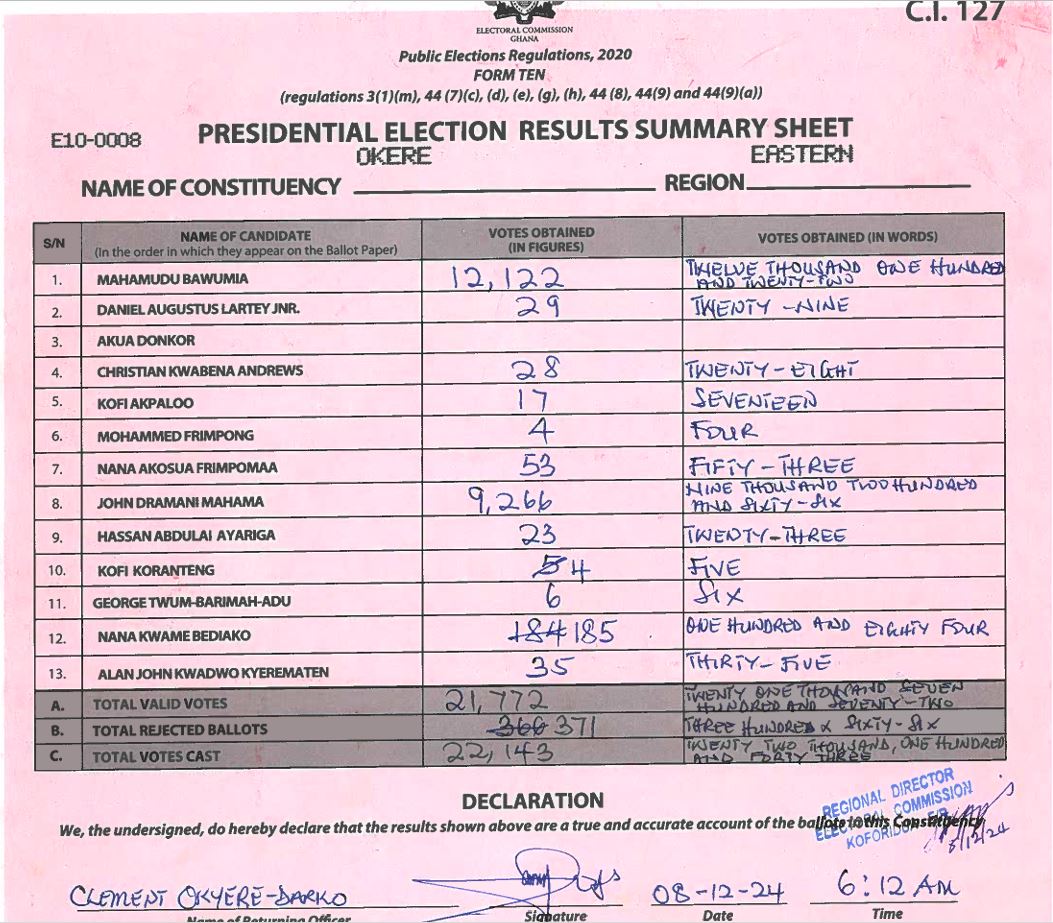 C.I. 127
ELECTORAL COMMISSION
GHANA
Public Elections Regulations, 2020
FORM TEN
(regulations 3(1)(m), 44 (7)(c), (d), (e), (g), (h), 44 (8), 44(9) and 44(9)(a))
E10-0008 PRESIDENTIAL ELECTION RESULTS SUMMARY SHEET
OKERE EASTERN
NAME OF CONSTITUENCY REGION
S/N NAME OF CANDIDATE (In the order in which they appear on the Ballot Paper) VOTES OBTAINED (IN FIGURES) VOTES OBTAINED (IN WORDS)
1. MAHAMUDU BAWUMIA 12,122 TWELVE THOUSAND ONE HUNDRED AND TWENTY-TWO
2. DANIEL AUGUSTUS LARTEY JNR. 29 TWENTY-NINE
3. AKUA DONKOR
4. CHRISTIAN KWABENA ANDREWS 28 TWENTY-EIGHT
5. KOFI AKPALOO 17 SEVENTEEN
6. MOHAMMED FRIMPONG 4 FOUR
7. NANA AKOSUA FRIMPOMAA 53 FIFTY-THREE
8. JOHN DRAMANI MAHAMA 9,266 NINE THOUSAND TWO HUNDRED AND SIXTY-SIX
9. HASSAN ABDULAI AYARIGA 23 TWENTY-THREE
10. KOFI KORANTENG 5 4 FIVE
11. GEORGE TWUM-BARIMAH-ADU 6 SIX
12. NANA KWAME BEDIAKO 184 185 ONE HUNDRED AND EIGHTY FOUR
13. ALAN JOHN KWADWO KYEREMATEN 35 THIRTY-FIVE
A. TOTAL VALID VOTES 21,772 TWENTY ONE THOUSAND SEVEN HUNDRED AND SEVENTY-TWO
B. TOTAL REJECTED BALLOTS 371 THREE HUNDRED & SIXTY-SIX
C. TOTAL VOTES CAST 22,143 TWENTY TWO THOUSAND, ONE HUNDRED AND FORTY THREE
DECLARATION
We, the undersigned, do hereby declare that the results shown above are a true and accurate account of the ballots in this Constituency
REGIONAL DIRECTOR
ELECTORAL COMMISSION
KOFORIDUA
CLEMENT OKYERE-DARKO 08-12-24 6:12 AM
Name of Returning Officer Signature Date Time